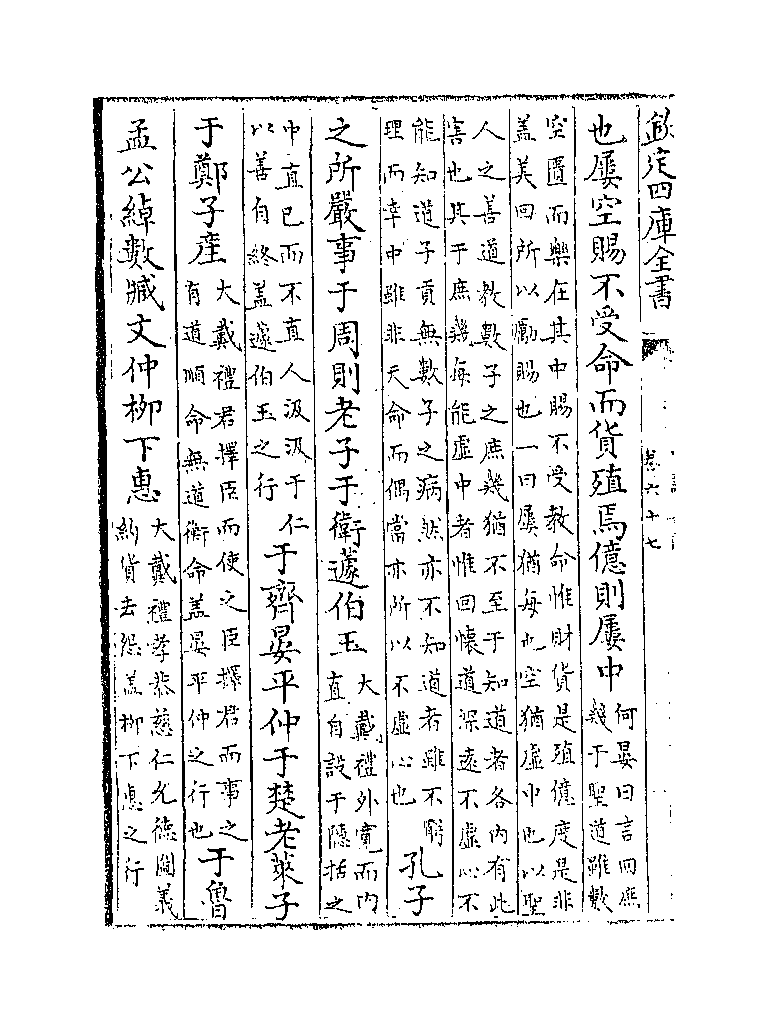 欽定四庫全書
卷六十七
也屢空賜不受命而貨殖焉億則屢中
何晏曰言回庶
幾于聖道雖數
空匱而樂在其中賜不受教命惟財貨是殖億度是非
盖美回所以勵賜也一曰屢猶每也空猶虛中也以聖
人之善道教數子之庶幾猶不至于知道者各内有此
害也其于庶幾每能虛中者惟回懷道深遠不虛心不
能知道子貢無數子之病然亦不知道者雖不窮
理而幸中雖非天命而偶當亦所以不虛心也
孔子
之所嚴事于周則老子于衛蘧伯玉
大戴禮外寛而内
直自設于隱括之
中直己而不直人汲汲于仁
以善自終盖蘧伯玉之行
于齊晏平仲于楚老萊子
于鄭子産
大戴禮君擇臣而使之臣擇君而事之
有道順命無道衡命盖晏平仲之行也
于魯
孟公綽數臧文仲栁下惠
大戴禮孝恭慈仁允德圖義
約貨去怨盖栁下惠之行